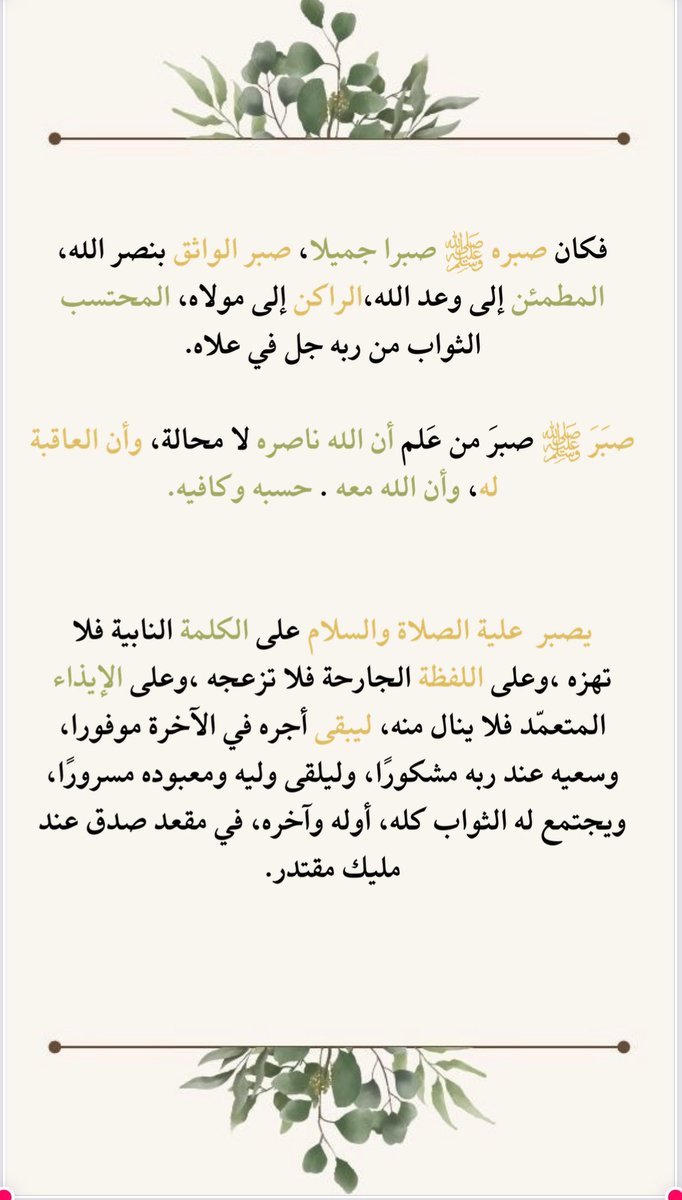 فكان صبره ﷺ صبرا جميلا، صبر الواثق بنصر الله،
المطمئن إلى وعد الله،الراكن إلى مولاه، المحتسب
الثواب من ربه جل في علاه.
صبَرَ ﷺ صبرَ من عَلم أن الله ناصره لا محالة، وأن العاقبة
له، وأن الله معه . حسبه وكافيه.
يصبر علية الصلاة والسلام على الكلمة النابية فلا
تهزه ،وعلى اللفظة الجارحة فلا تزعجه ،وعلى الإيذاء
المتعمّد فلا ينال منه، ليبقى أجره في الآخرة موفورا،
وسعيه عند ربه مشكورًا، وليلقى وليه ومعبوده مسرورًا،
ويجتمع له الثواب كله، أوله وآخره، في مقعد صدق عند
مليك مقتدر.